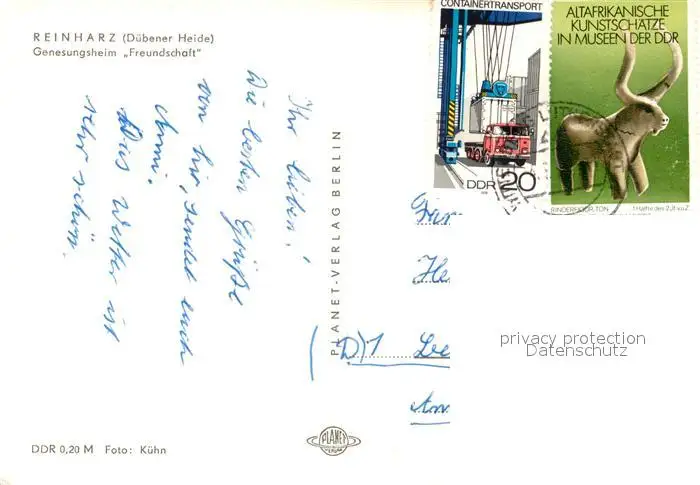 REINHARZ (Dübener Heide)
Genesungsheim „Freundschaft"
CONTAINERTRANSPORT
DDR 20
ALTAFRIKANISCHE
KUNSTSCHÄTZE
IN MUSEEN DER DDR
RINDERFIGUR, TON 1. Hälfte des 2. Jt. v. u. Z.
Ihr lieben!
Die besten Grüße
von hir, sendet euch
Das Wetter ist
sehr schön.
PLANET-VERLAG BERLIN
Fam
He
D)1 Be
privacy protection
Datenschutz
PLANET
DDR 0,20 M Foto: Kühn